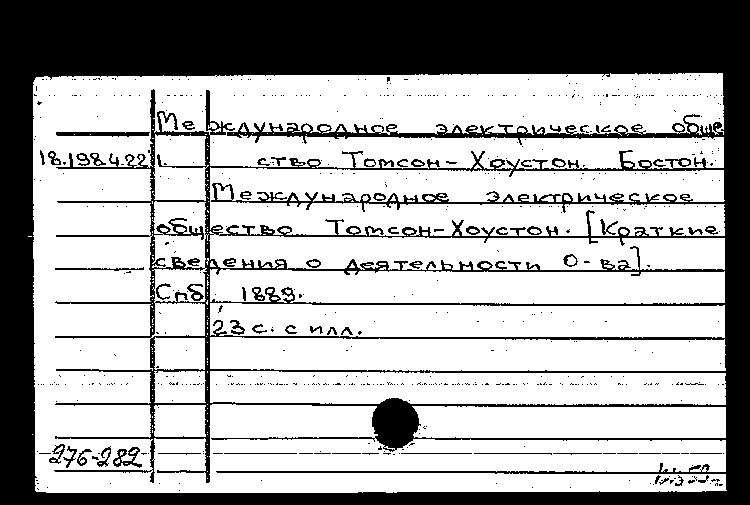 Международное электрическое обще
18.198.4.22 1. ство Томсон-Хоустон. Бостон.
Международное электрическое
общество Томсон-Хоустон. [Краткие
сведения о деятельности О-ва].
Спб, 1889.
23 с. с илл.
276-282